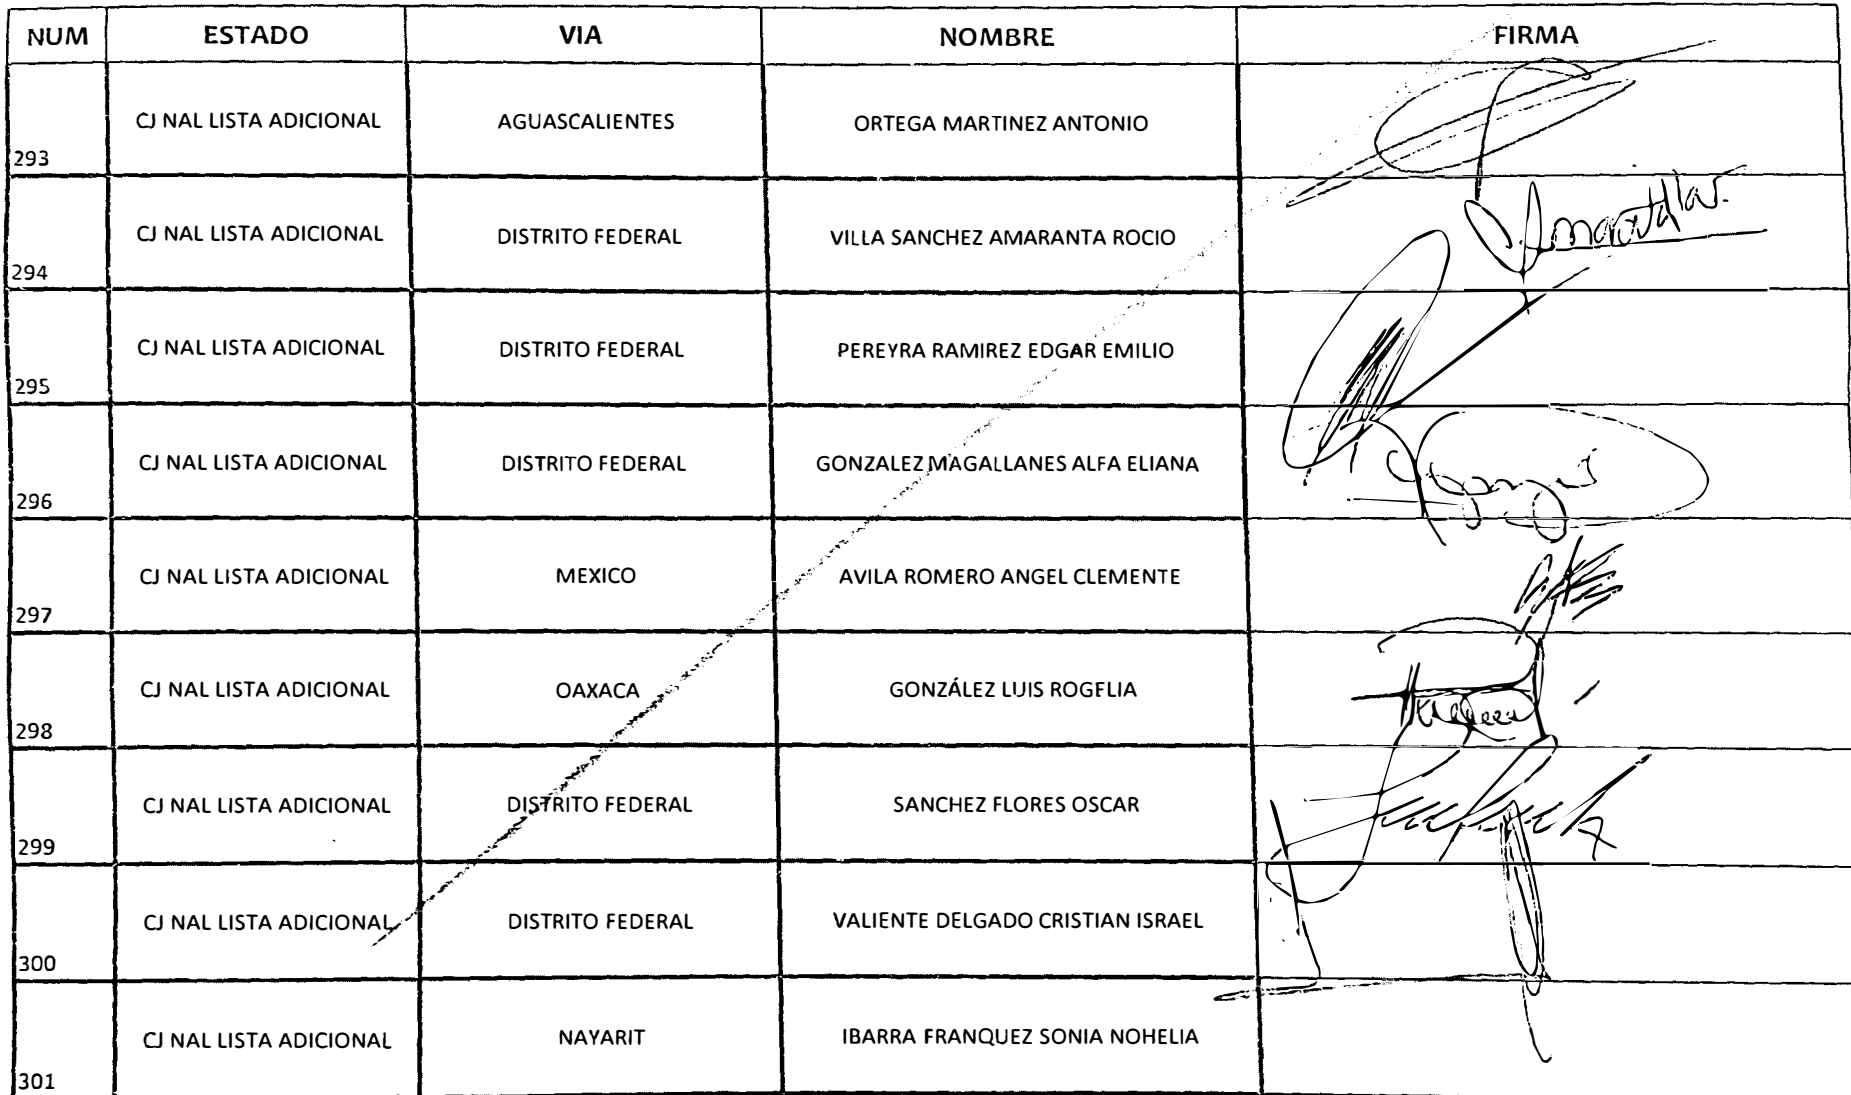 NUM ESTADO VIA NOMBRE FIRMA
293 CJ NAL LISTA ADICIONAL AGUASCALIENTES ORTEGA MARTINEZ ANTONIO
294 CJ NAL LISTA ADICIONAL DISTRITO FEDERAL VILLA SANCHEZ AMARANTA ROCIO
295 CJ NAL LISTA ADICIONAL DISTRITO FEDERAL PEREYRA RAMIREZ EDGAR EMILIO
296 CJ NAL LISTA ADICIONAL DISTRITO FEDERAL GONZALEZ MAGALLANES ALFA ELIANA
297 CJ NAL LISTA ADICIONAL MEXICO AVILA ROMERO ANGEL CLEMENTE
298 CJ NAL LISTA ADICIONAL OAXACA GONZÁLEZ LUIS ROGELIA
299 CJ NAL LISTA ADICIONAL DISTRITO FEDERAL SANCHEZ FLORES OSCAR
300 CJ NAL LISTA ADICIONAL DISTRITO FEDERAL VALIENTE DELGADO CRISTIAN ISRAEL
301 CJ NAL LISTA ADICIONAL NAYARIT IBARRA FRANQUEZ SONIA NOHELIA